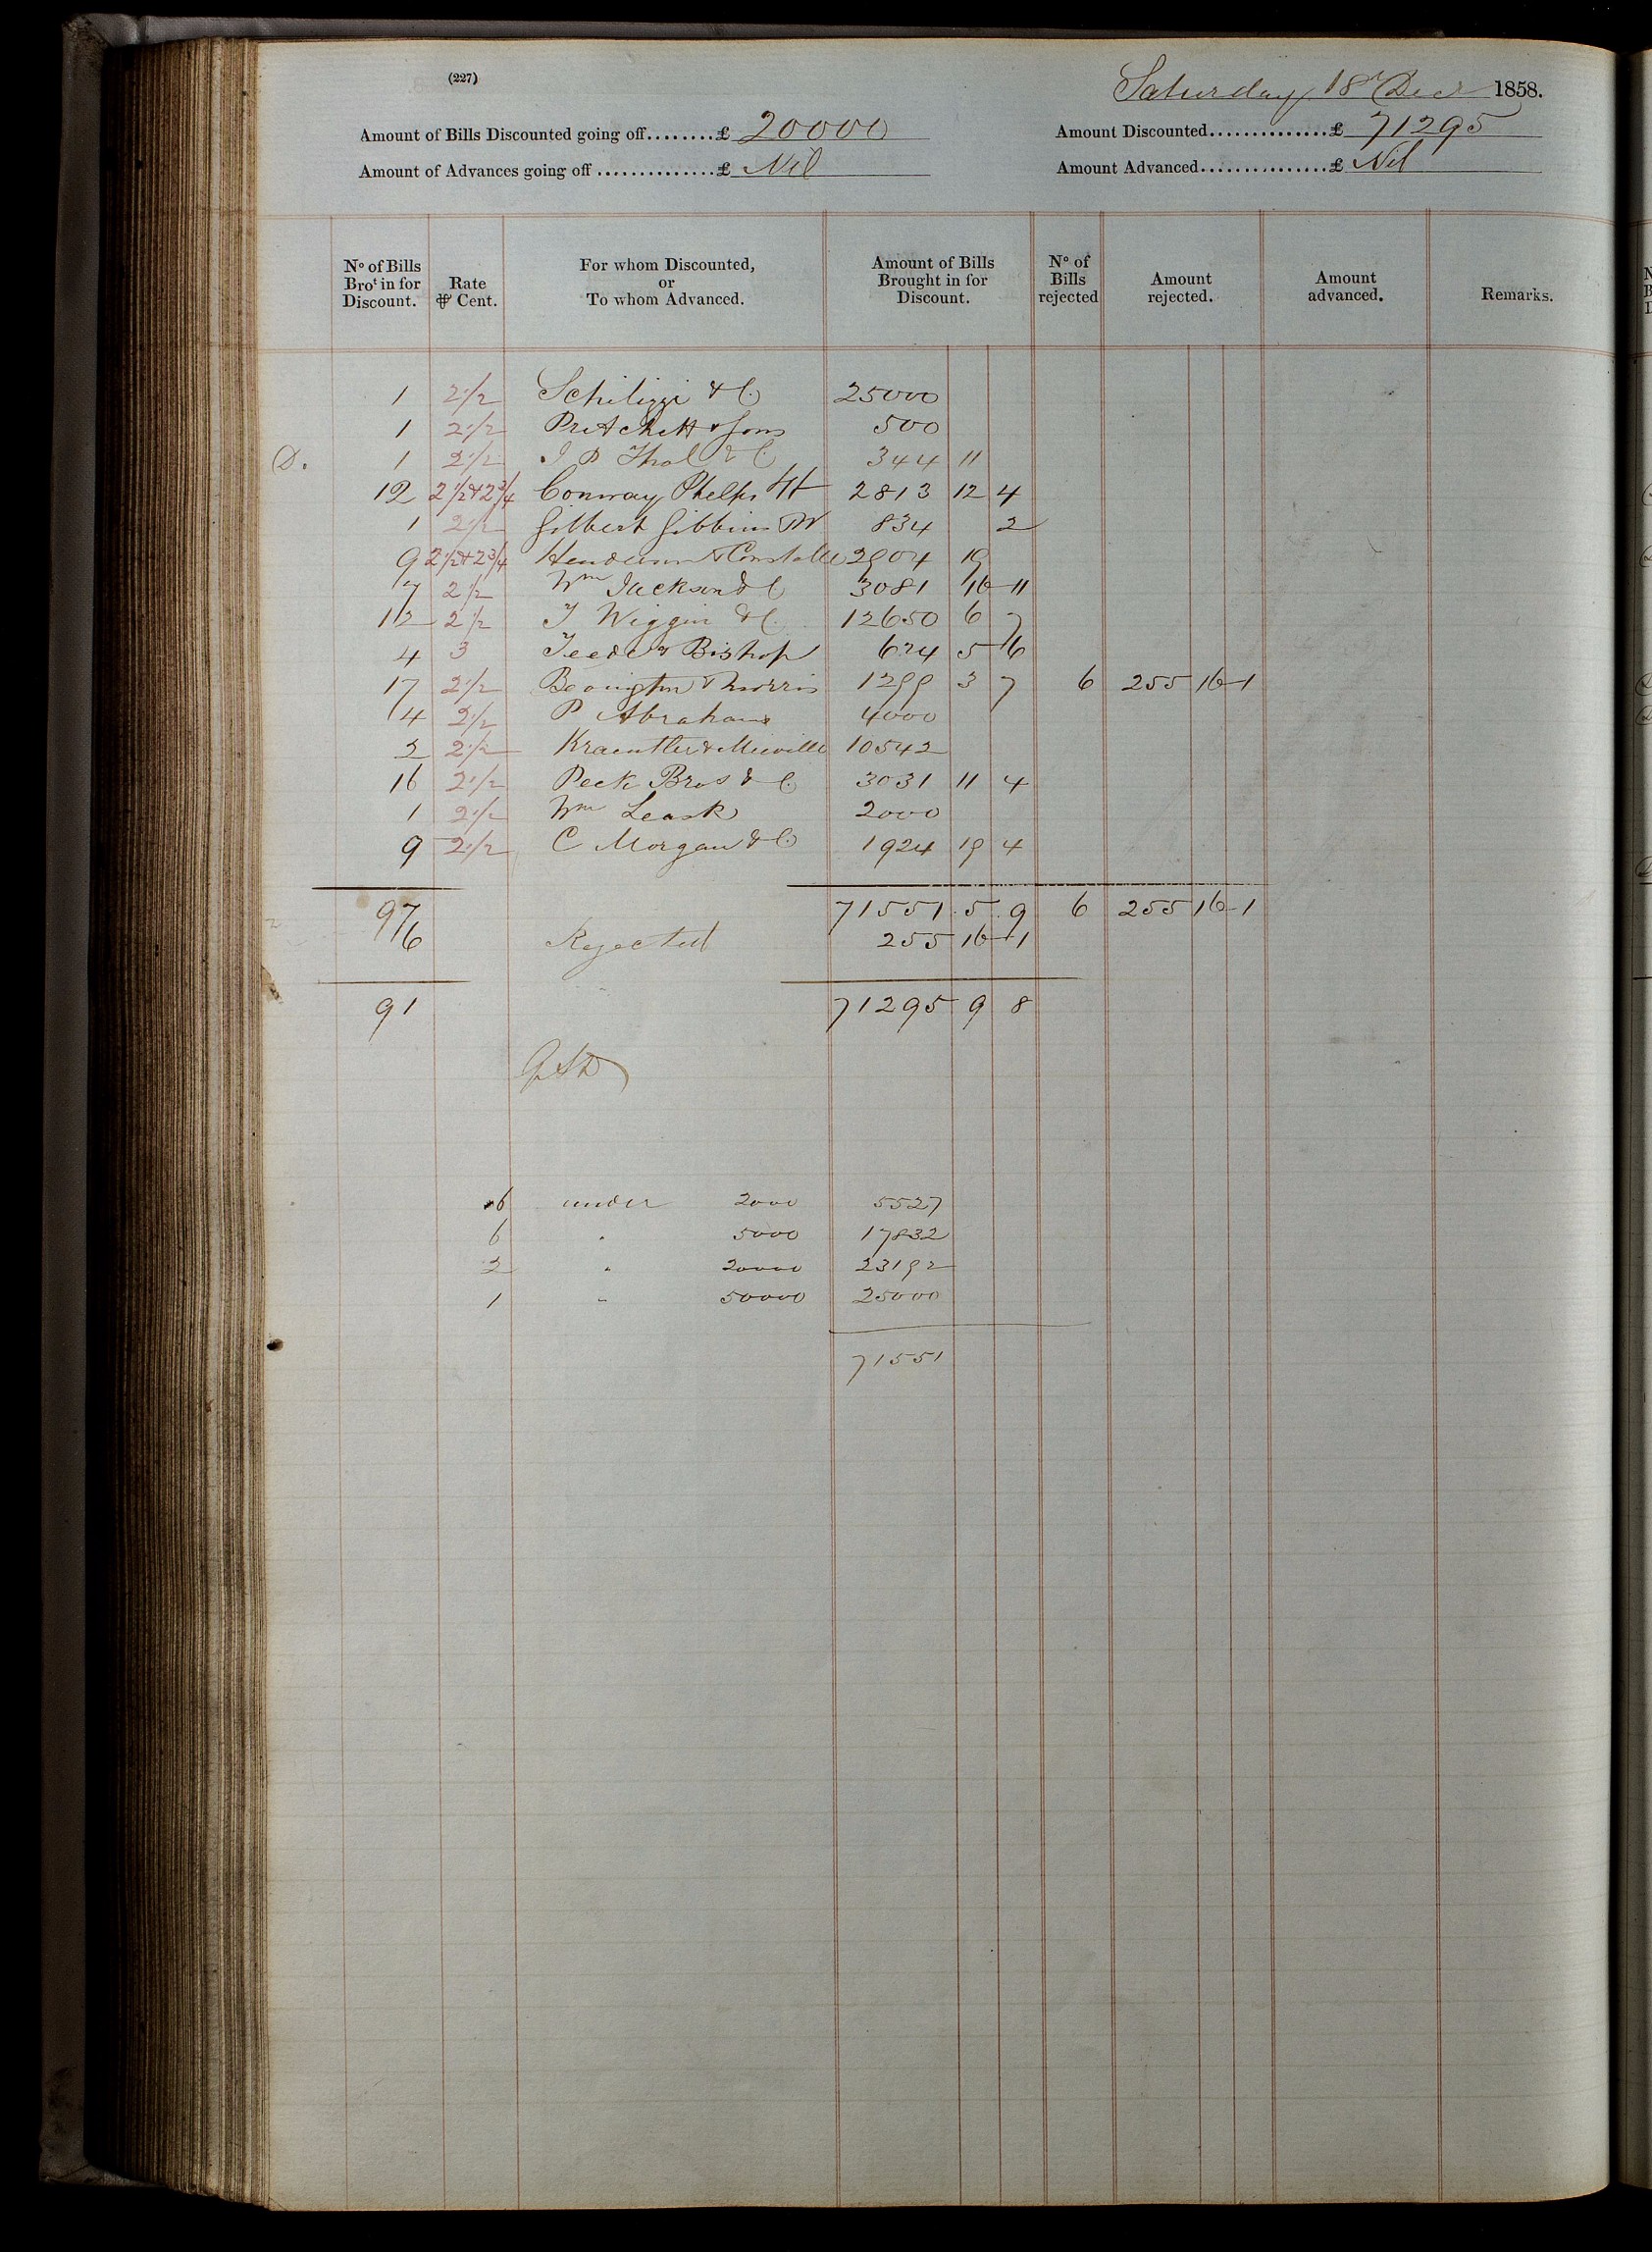 (227)
Saturday 18th Decr 1858.
Amount of Bills Discounted going off........£ 20000
Amount Discounted..............£ 71295
Amount of Advances going off..............£ Nil
Amount Advanced...............£ Nil
No of Bills Brot in for Discount. Rate ⅌ Cent. For whom Discounted, or To whom Advanced. Amount of Bills Brought in for Discount. No of Bills rejected Amount rejected. Amount advanced. Remarks.
1 2 1/2 Schilizzi & Co 25000
1 2 1/2 Pritchett & Sons 500
D. 1 2 1/2 J P Thol & Co 344 11
12 2 1/2 & 2 3/4 Conway Phelps 2813 12 4
1 2 1/2 Gilbert Gibbins W 834 2
9 2 1/2 & 2 3/4 Henderson & Constable 2904 19
7 2 1/2 Wm Jackson & Co 3081 16 11
12 2 1/2 T Wiggin & Co 12650 6 7
4 3 Teede & Bishop 624 5 6
17 2 1/2 Bevington & Morris 1299 3 7 6 255 16 1
4 2 1/2 P Abrahams 4000
2 2 1/2 Kraeutler & Mieville 10542
16 2 1/2 Peck Bros & Co 3031 11 4
1 2 1/2 Wm Leask 2000
9 2 1/2 C Morgan & Co 1924 19 4
97 71551 5 9 6 255 16 1
6 Rejected 255 16 1
91 71295 9 8
6 under 2000 5527
6 " 5000 17832
2 " 20000 23192
1 " 50000 25000
71551